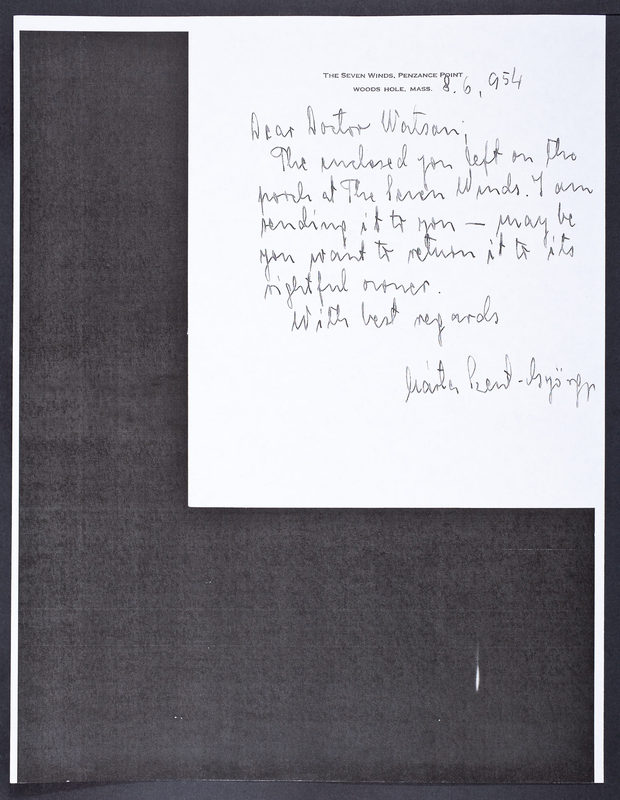 THE SEVEN WINDS, PENZANCE POINT
WOODS HOLE, MASS.
8.6, 954
Dear Doctor Watson,
The enclosed you left on the
porch at The Seven Winds. I am
sending it to you — may be
you want to return it to its
rightful owner.
With best regards
Márta Szent-Györgyi